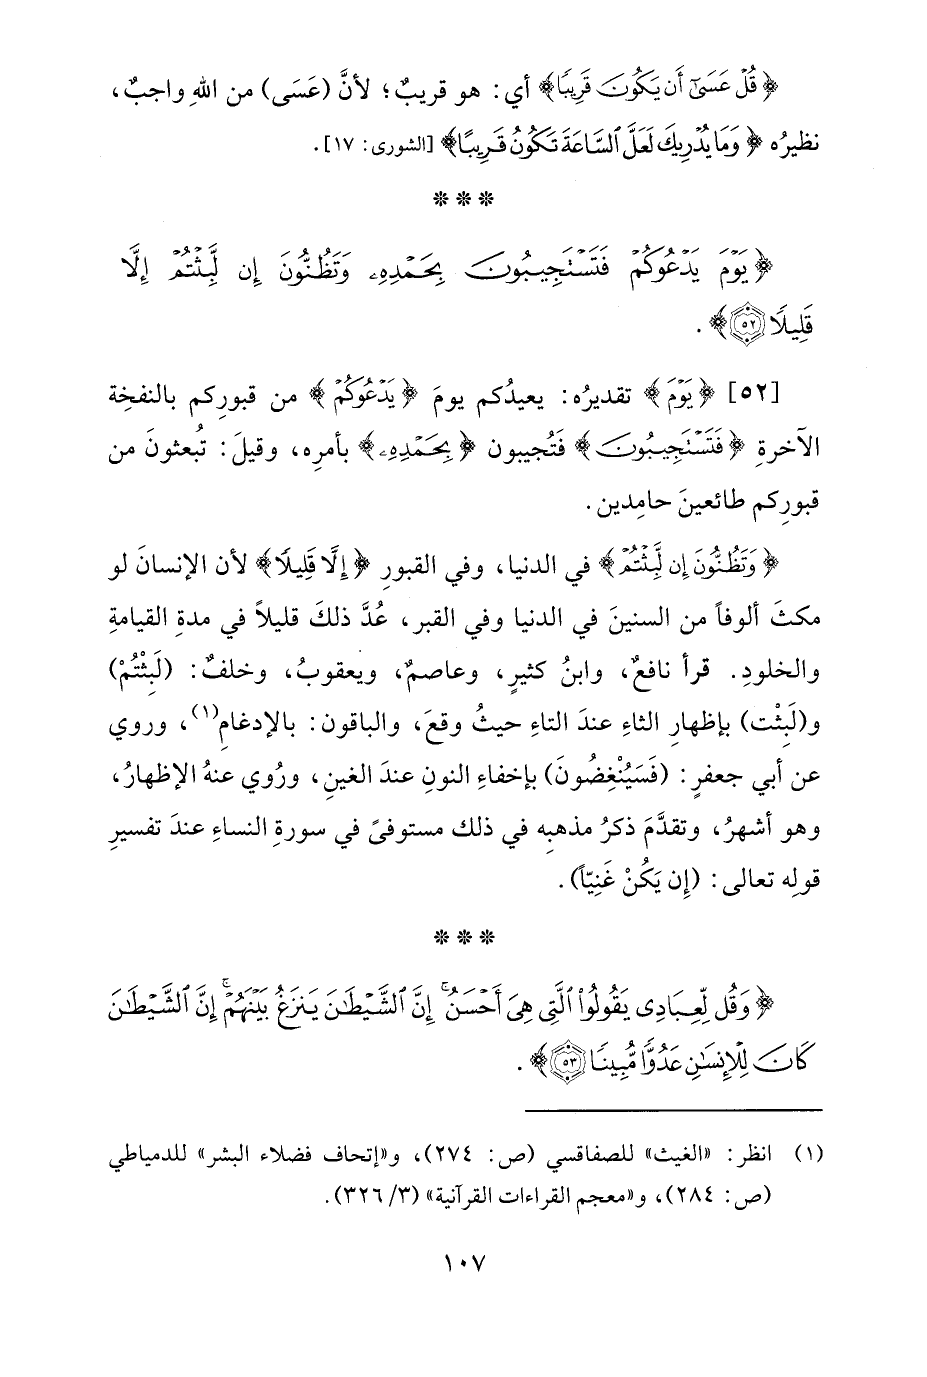 ﴿قُلْ عَسَىٰٓ أَن يَكُونَ قَرِيبًا﴾ أي: هو قريبٌ؛ لأنَّ (عَسَى) من اللهِ واجبٌ،
نظيرُه ﴿وَمَا يُدْرِيكَ لَعَلَّ ٱلسَّاعَةَ تَكُونُ قَرِيبًا﴾ [الشورى: ١٧].
* * *
﴿يَوْمَ يَدْعُوكُمْ فَتَسْتَجِيبُونَ بِحَمْدِهِۦ وَتَظُنُّونَ إِن لَّبِثْتُمْ إِلَّا
قَلِيلًا ٥٢﴾.
[٥٢] ﴿يَوْمَ﴾ تقديرُه: يعيدُكم يومَ ﴿يَدْعُوكُمْ﴾ من قبورِكم بالنفخةِ
الآخرةِ ﴿فَتَسْتَجِيبُونَ﴾ فَتُجيبون ﴿بِحَمْدِهِۦ﴾ بأمرِه، وقيلَ: تُبعثونَ من
قبورِكم طائعينَ حامِدين.
﴿وَتَظُنُّونَ إِن لَّبِثْتُمْ﴾ في الدنيا، وفي القبورِ ﴿إِلَّا قَلِيلًا﴾ لأن الإنسانَ لو
مكثَ ألوفاً من السنينَ في الدنيا وفي القبر، عُدَّ ذلكَ قليلاً في مدةِ القيامةِ
والخلودِ. قرأ نافعٌ، وابنُ كثيرٍ، وعاصمٌ، ويعقوبُ، وخلفٌ: (لَبِثْتُمْ)
و(لَبِثْت) بإظهارِ الثاءِ عندَ التاءِ حيثُ وقعَ، والباقون: بالإدغامِ(١)، وروي
عن أبي جعفرٍ: (فَسَيُنْغِضُونَ) بإخفاءِ النونِ عندَ الغينِ، ورُوي عنهُ الإظهارُ،
وهو أشهرُ، وتقدَّمَ ذكرُ مذهبِه في ذلك مستوفىً في سورةِ النساءِ عندَ تفسيرِ
قولِه تعالى: (إِن يَكُنْ غَنِيّاً).
* * *
﴿وَقُل لِّعِبَادِى يَقُولُوا۟ ٱلَّتِى هِىَ أَحْسَنُ ۚ إِنَّ ٱلشَّيْطَـٰنَ يَنزَغُ بَيْنَهُمْ ۚ إِنَّ ٱلشَّيْطَـٰنَ
كَانَ لِلْإِنسَـٰنِ عَدُوًّا مُّبِينًا ٥٣﴾.
(١) انظر: «الغيث» للصفاقسي (ص: ٢٧٤)، و«إتحاف فضلاء البشر» للدمياطي
(ص: ٢٨٤)، و«معجم القراءات القرآنية» (٣/ ٣٢٦).
١٠٧